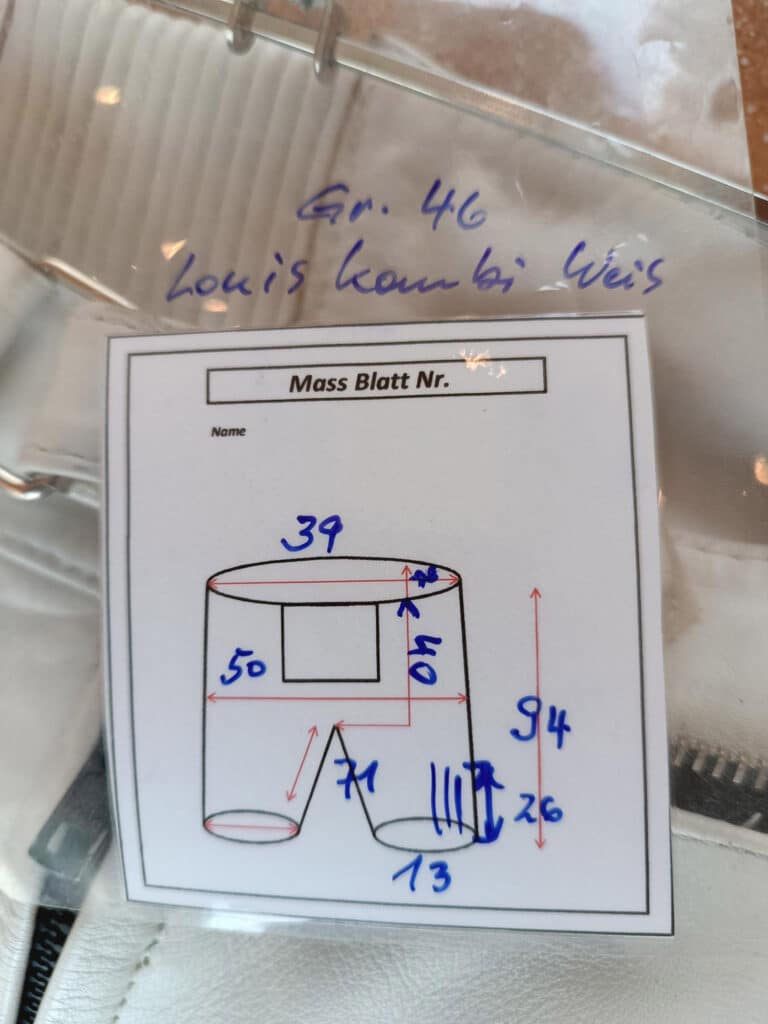 Gr. 46
Louis Kombi Weis
Mass Blatt Nr.
Name
39
50
40
94
71
26
13